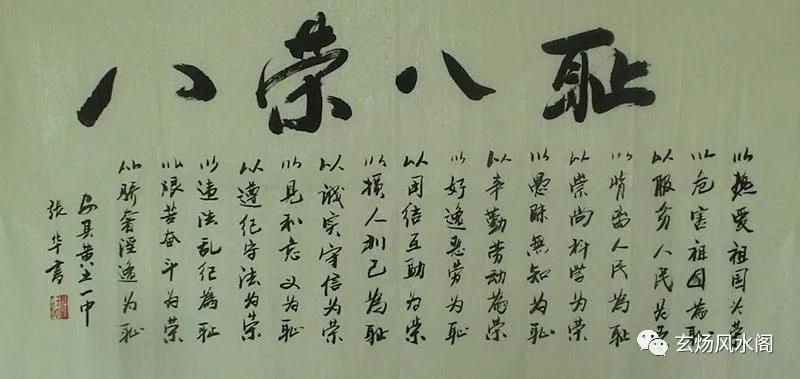 八荣八耻
以热爱祖国为荣
以危害祖国為耻
以服务人民为荣
以背离人民為耻
以崇尚科学为荣
以愚昧無知为耻
以辛勤劳动為荣
以好逸恶劳为耻
以团结互助为荣
以损人利己為耻
以诚实守信为荣
以見利忘义为耻
以遵纪守法为荣
以违法乱纪為耻
以艰苦奋斗为荣
以骄奢淫逸为耻
安县黄土一中
张华書
玄炀风水阁